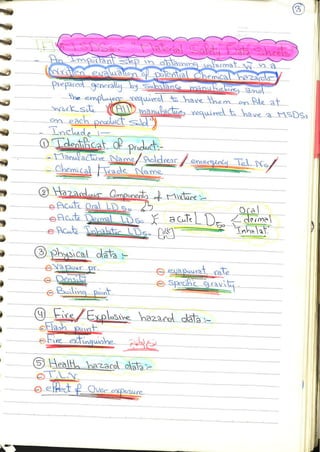 ③
Material Safety Data Sheets
- An Important step in obtaining informat. is a
written evaluation of potential chemical hazards
prepared generally by substance manufacturing and
the employer required to have them on file at
work site, All manufacture required to have a MSDSs
on each product sold
- Include :-
① Identificat of product:-
- Manufacture Name / Addrear / emergency Tel. No/
- Chemical / Trade Name
② Hazardous Components of Mixture:-
Acute Oral LD50
Acute Dermal LD50 acute LD50 Oral dermal Inhalat
Acute Inhalatic LD50
③ physical data:-
Vapour pr. evapourat rate
Density Specific gravity
Boiling point
④ Fire / Explosive hazard data:-
Flash point
Fire extinguishe
⑤ Health hazard data:-
T.L.V
effect of Over exposure